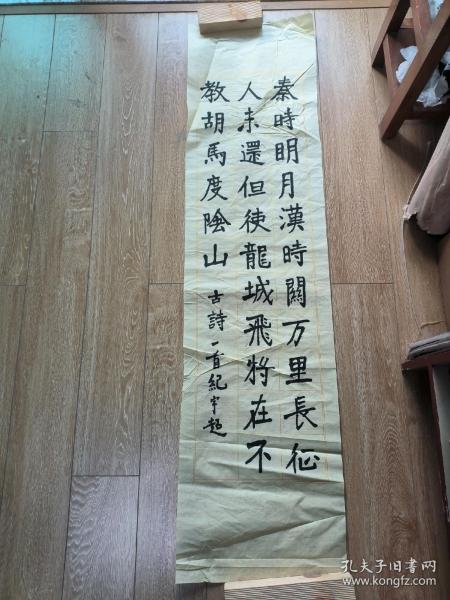 秦時明月漢時關万里長征
人未還但使龍城飛將在不
教胡馬度陰山
古詩一首紀宇超
孔夫子旧书网
www.kongfz.com